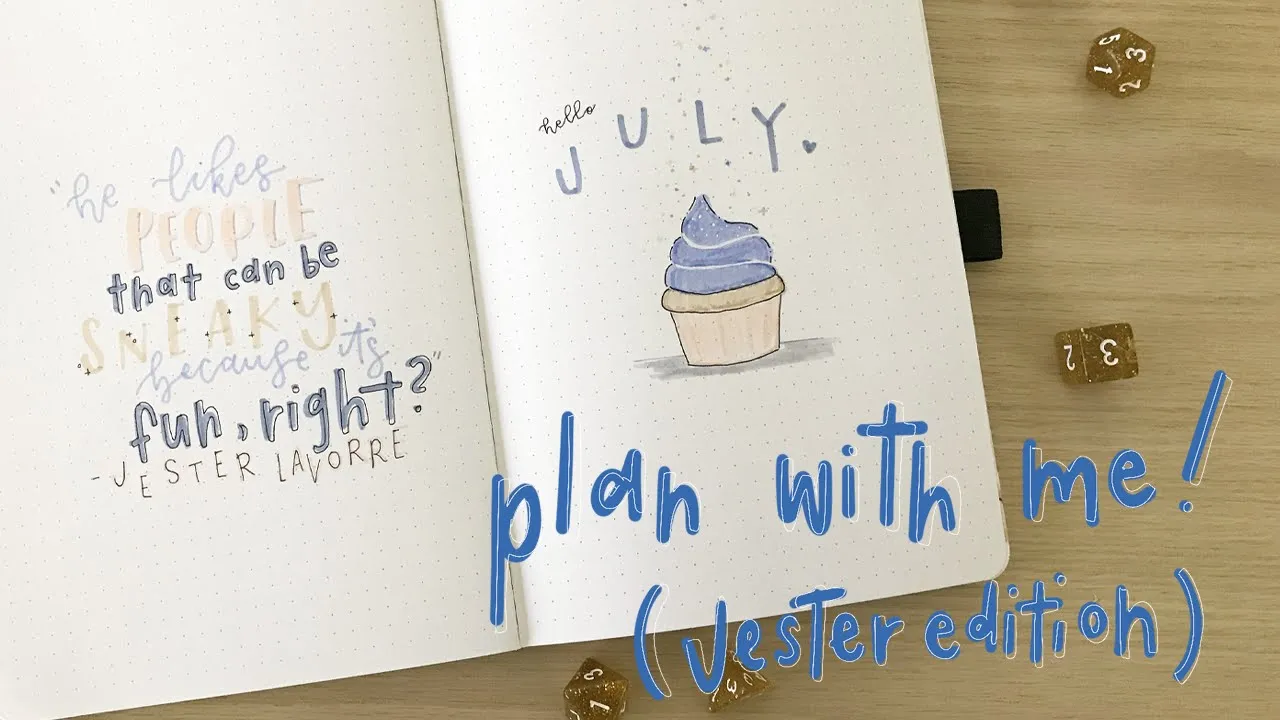 "he likes
PEOPLE
that can be
SNEAKY
because it's
fun, right?"
- JESTER LAVORRE
hello
JULY.
plan with me!
(Jester edition)
5
3
1
2
2
3
3